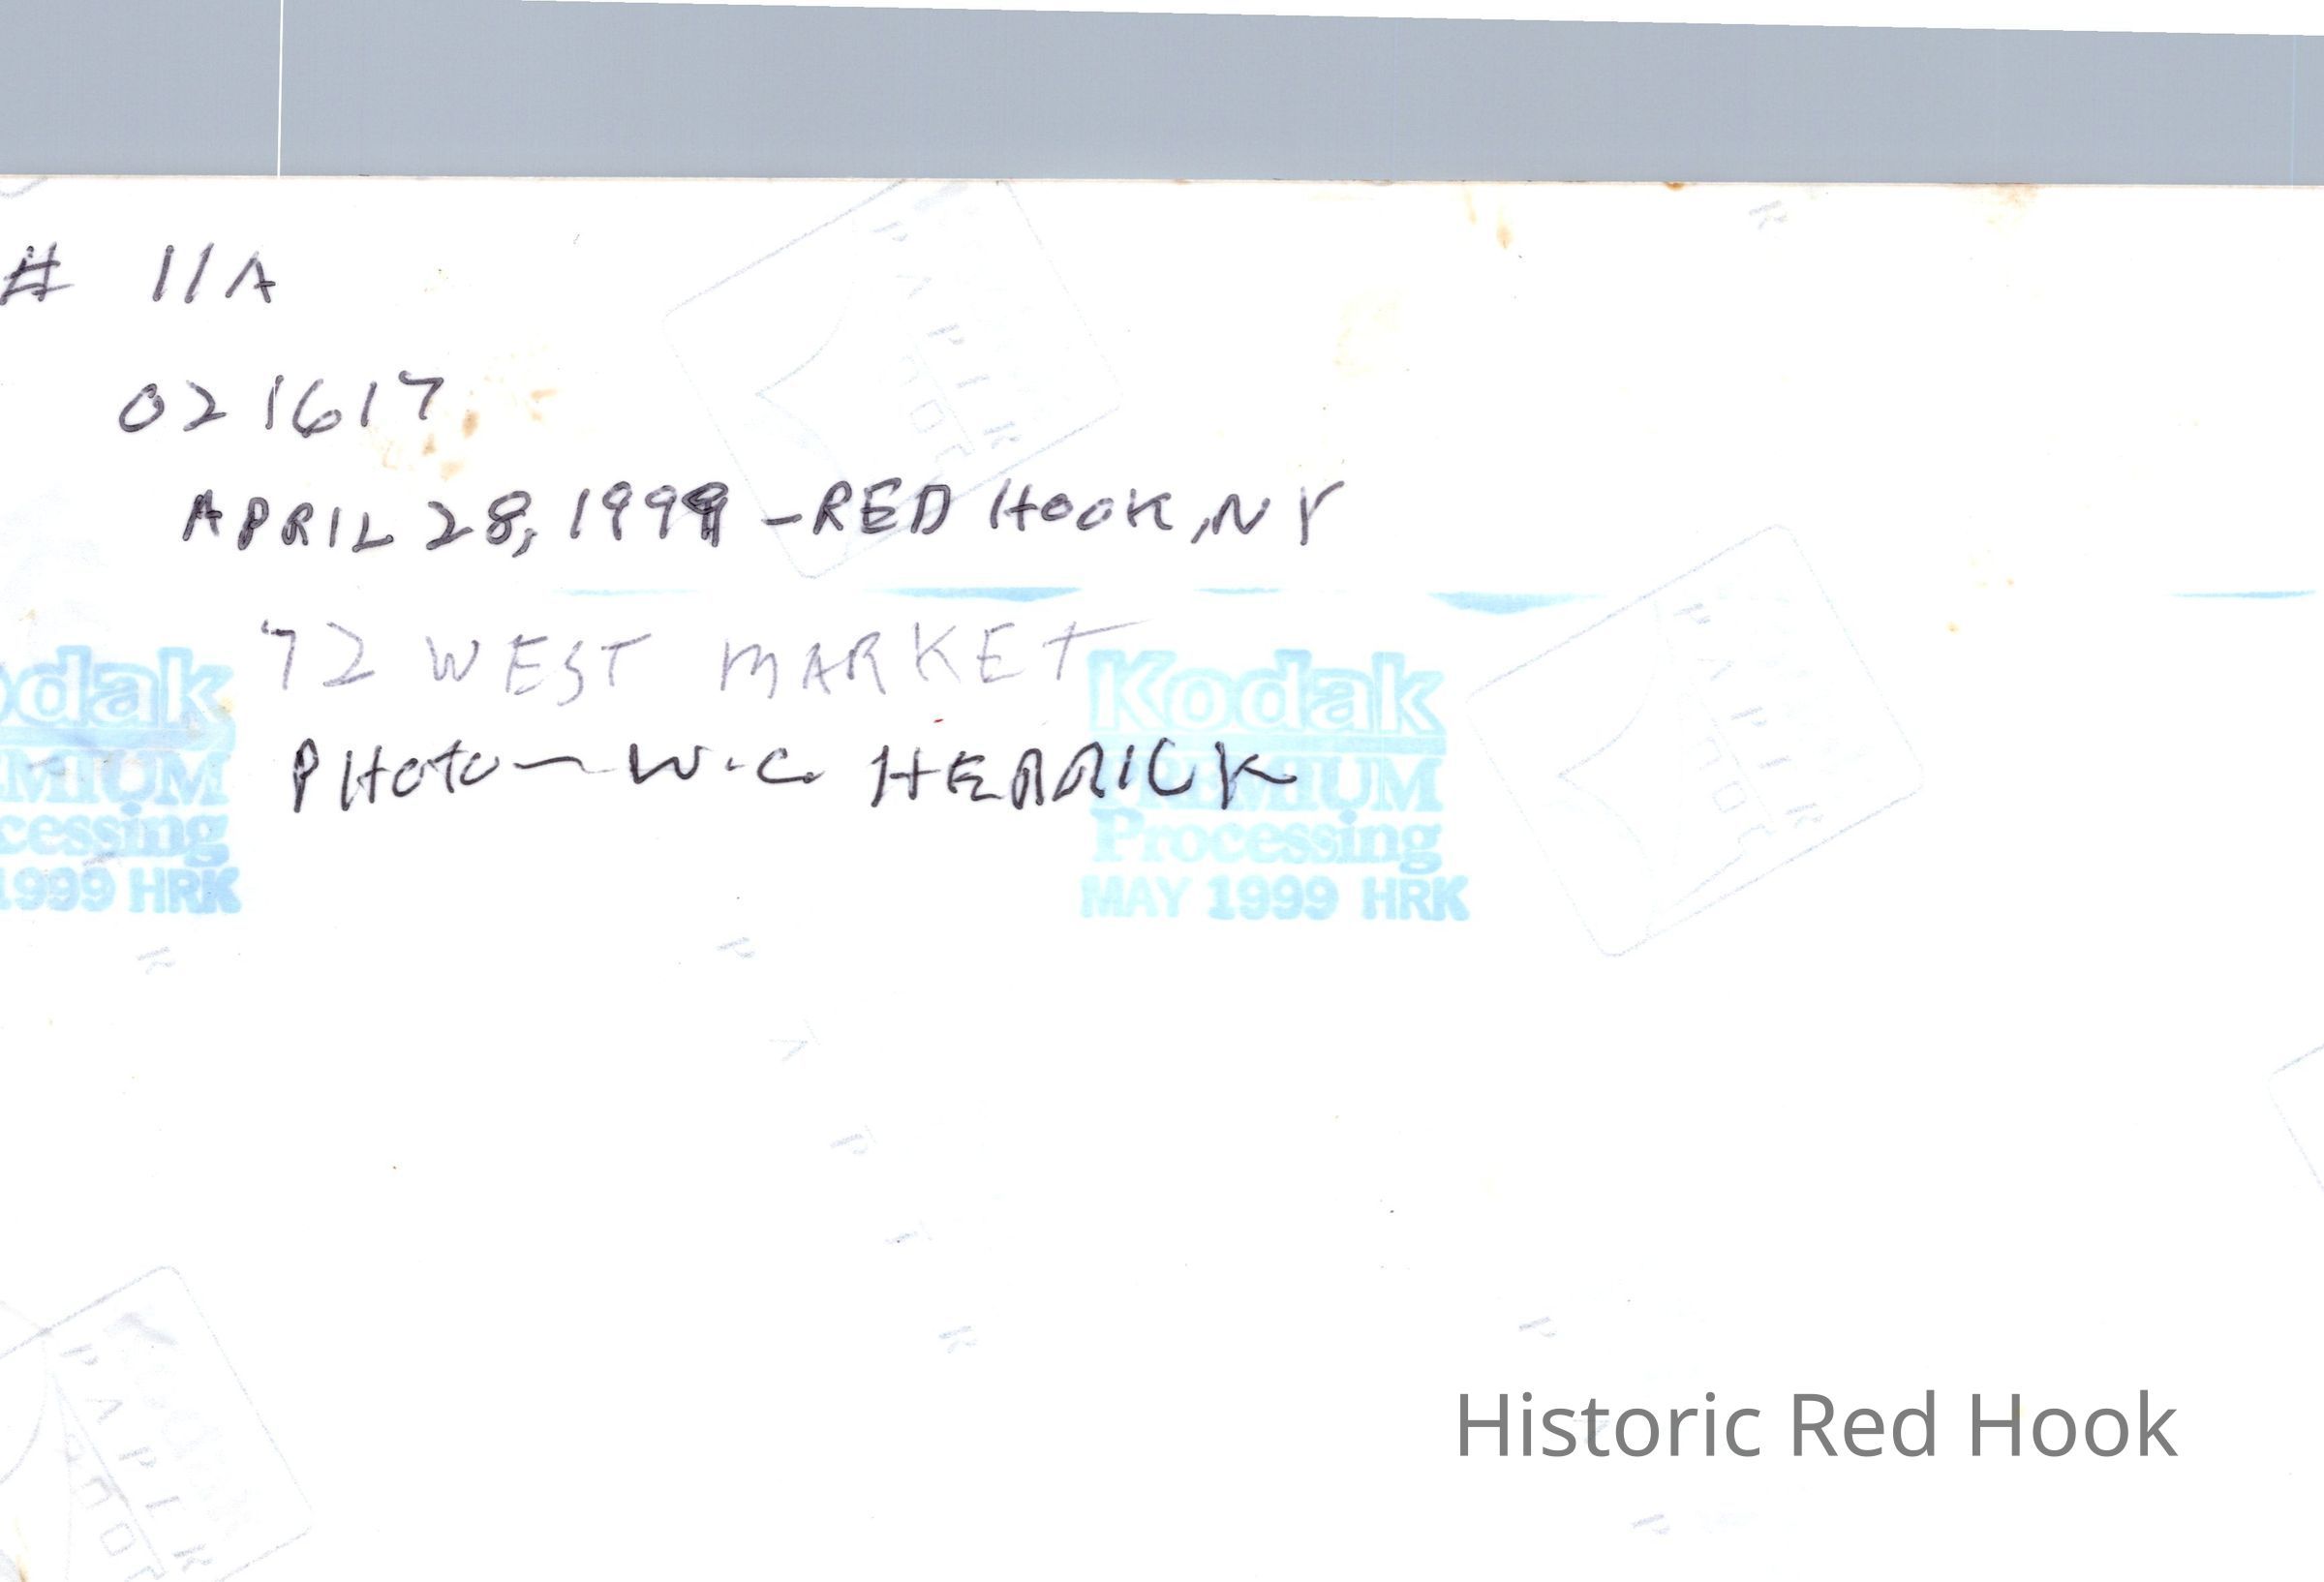 # 11A
021617
APRIL 28, 1999 - RED HOOK, NY
72 WEST MARKET
PHOTO - W.C. HERRICK
odak
Kodak
EMIUM
PREMIUM
cessing
Processing
1999 HRK
MAY 1999 HRK
Historic Red Hook